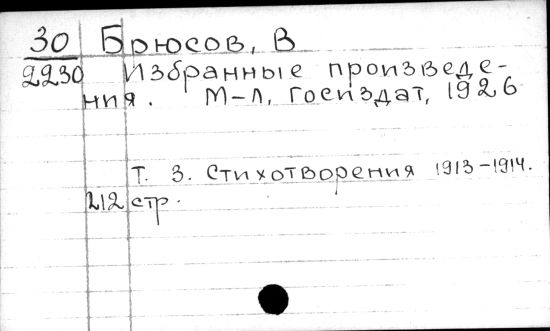 30 Брюсов, В
2230 Избранные произведе-
ния. М-Л, Госиздат, 1926
Т. 3. Стихотворения 1913-1914.
212 стр.